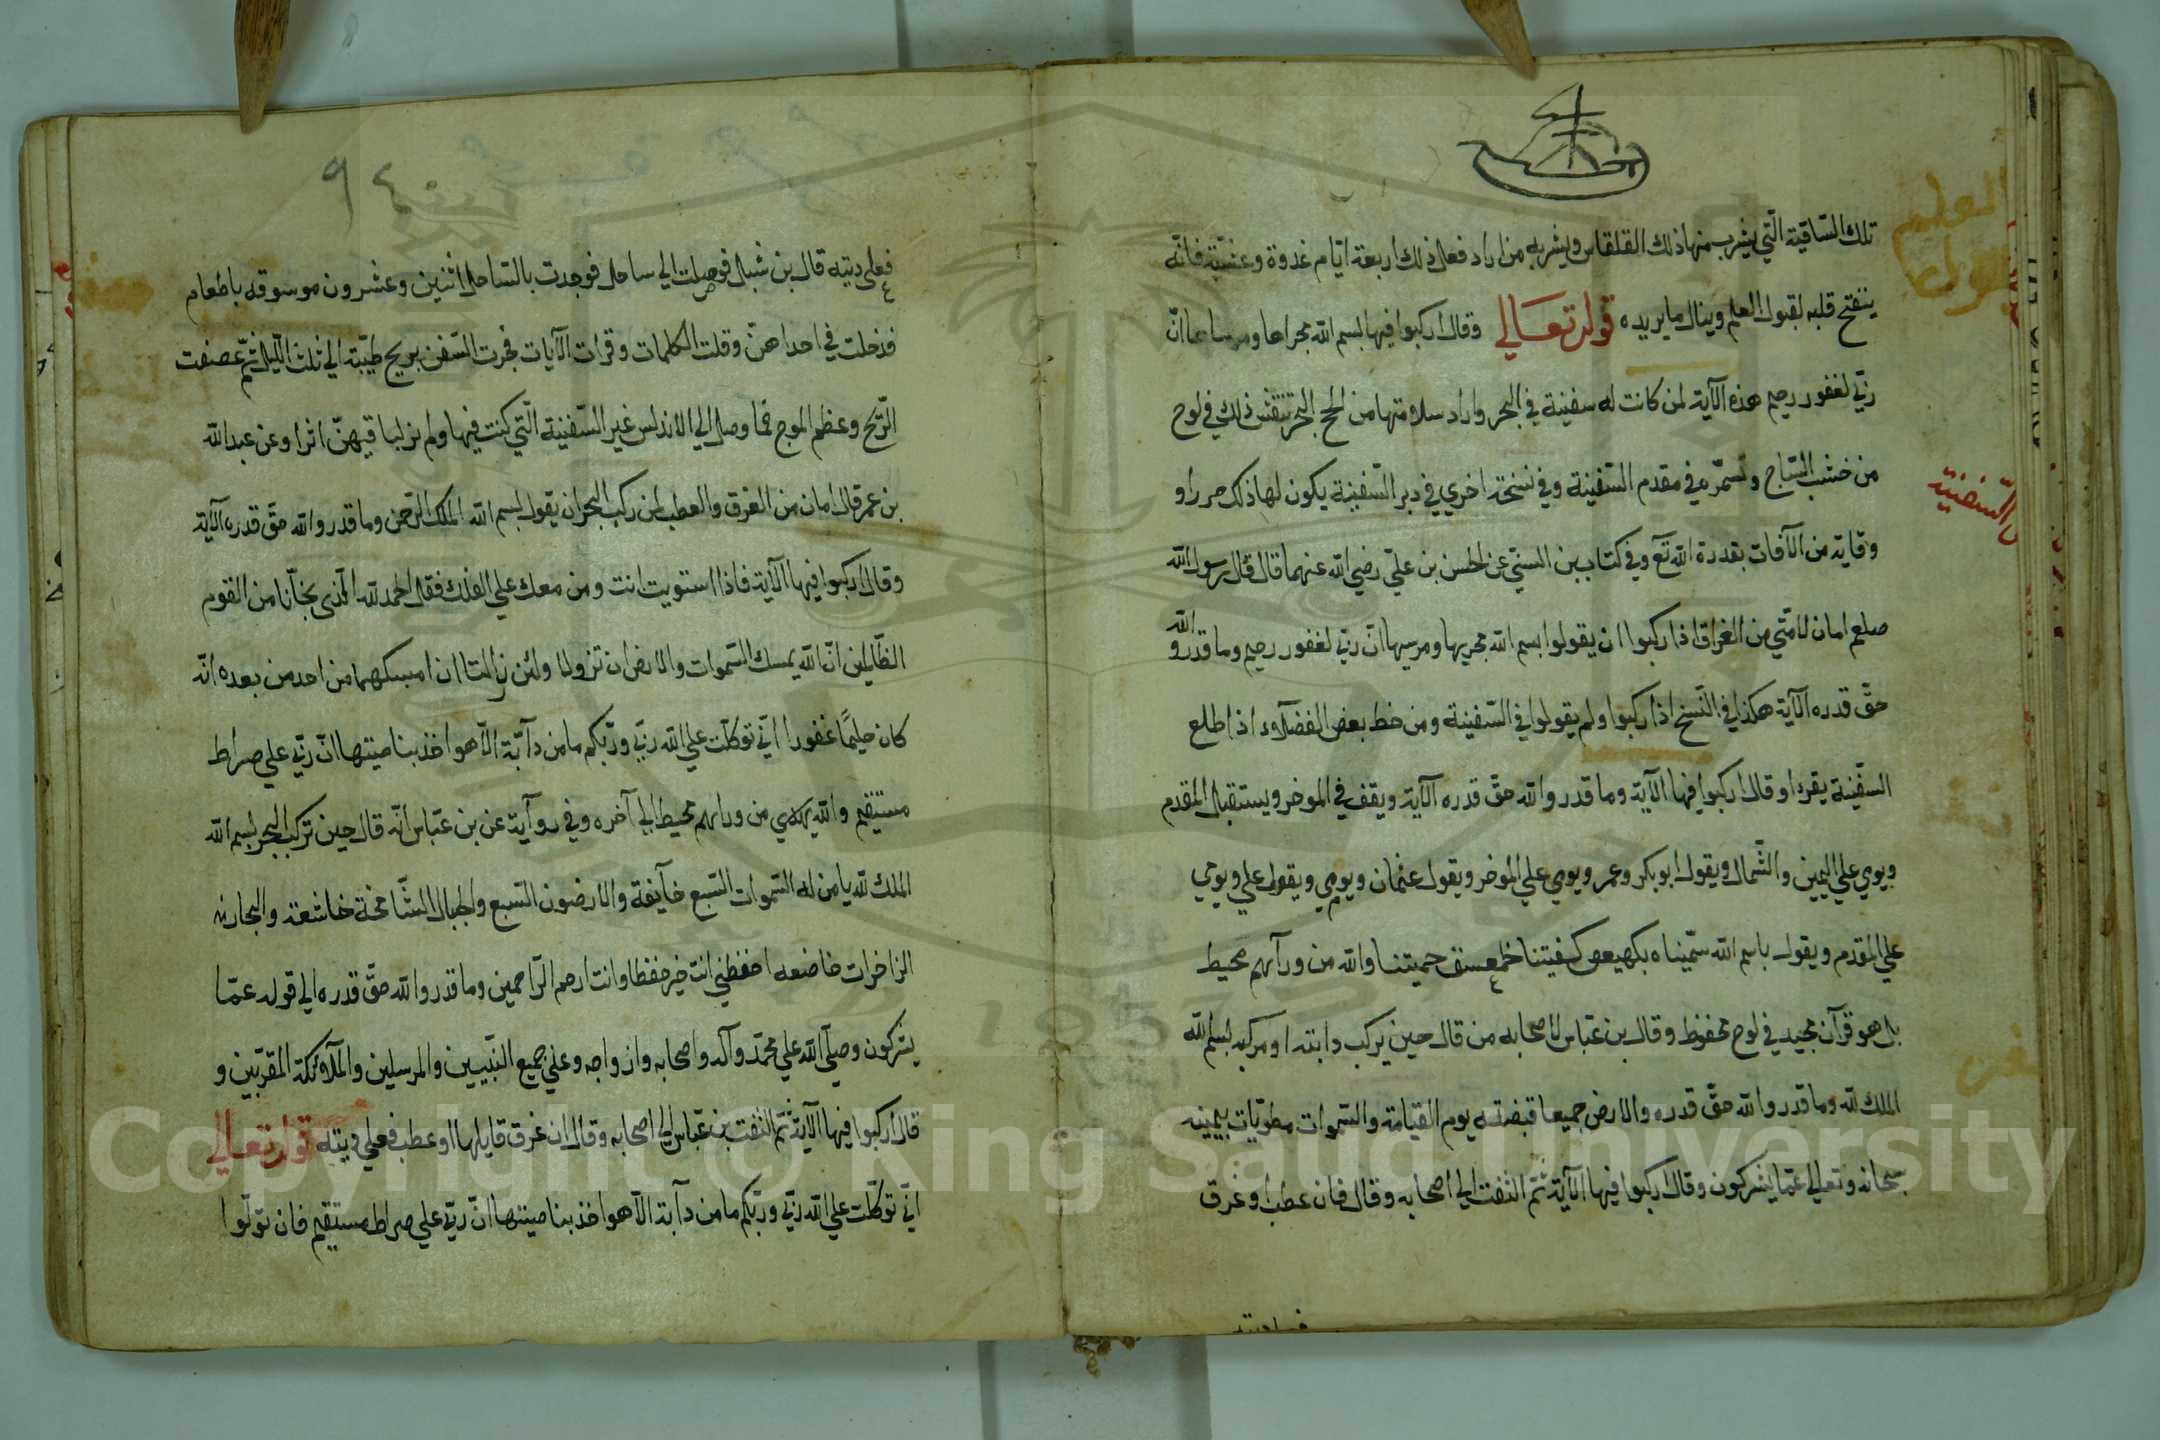 تلك الساقية التي يشرب منها ذلك القلقاس ويشربه من اراد فعل ذلك اربعة ايام غدوة وعشية فانه
ينفتح قلبه لقبول العلم وينال ما يريده قوله تعالي وقال اركبوا فيها بسم الله مجراها ومرساها انّ
ربّي لغفور رحيم هذه الآية لمن كانت له سفينة في البحر واراد سلامتها من لحج البحر تنقش ذلك في لوح
من خشب الساج وتسمّره في مقدم السّفينة وفي نسخة اخري في دبر السّفينة يكون لها ذلك حرزا و
وقاية من الآفات بقدرة الله تع وفي كتاب بن السنّي عن الحسن بن عليّ رضي الله عنهما قال قال رسول الله
صلعم امان لامّتي من الغراق اذا ركبوا ان يقولوا بسم الله مجريها ومرسيها انّ ربّي لغفور رحيم وما قدروا الله
حقّ قدره الآية هكذا في النّسخ اذا ركبوا ولم يقولوا في السّفينة ومن خط بعض الفضلاء اذا طلع
السّفينة يقرا وقال اركبوا فيها الآية وما قدروا الله حقّ قدره الآية ويقف في الموخر ويستقبل المقدم
ويومي علي اليمين والشّمال ويقول ابو بكر وعمر ويومي علي الموخر ويقول عثمان ويومي ويقول علي ويومي
علي المقدم ويقول باسم الله سمّيناه بكهيعص كفيتنا حمعسق حميتنا والله من ورآئهم محيط
بل هو قرآن مجيد في لوح محفوظ وقال بن عبّاس لاصحابه من قال حين يركب دابته او مركبه بسم الله
الملك لله وما قدروا الله حقّ قدره والارض جميعا قبضته يوم القيامة والسّموات مطويّات بيمينه
سبحانه وتعالي عمّا يشركون وقال اركبوا فيها الآية ثمّ التفت الي اصحابه وقال فان عطب او غرق
السّفينة
٩٤
فعلي ديته قال بن شبل فوصلت الي ساحل فوجدت بالسّاحل اثنين وعشرون موسوقه باطعام
فدخلت في احداهنّ وقلت الكلمات وقرات الآيات فجرت السّفن بريح طيّبة الي ثلث الّليل ثمّ عصفت
الرّيح وعظم الموج فما وصل الي الاندلس غير السّفينة الّتي كنت فيها ولم نر لباقيهنّ اثرا وعن عبد الله
بن عمر قال امان من الغرق والعطب لمن ركب البحر ان يقول بسم الله الملك الرّحمن وما قدروا الله حقّ قدره الآية
وقال اركبوا فيها الآية فاذا استويت انت ومن معك علي الفلك فقل الحمد لله الّذي نجّانا من القوم
الظّالمين انّ الله يمسك السّموات والارض ان تزولا ولئن زالتا ان امسكهما من احد من بعده انّه
كان حليمًا غفورا انّي توكّلت علي الله ربّي وربّكم ما من دآبّة الّا هو اخذ بناصيتها انّ ربّي علي صراط
مستقيم والله من ورائهم محيط الي آخره وفي رواية عن بن عبّاس انّه قال حين تركب البحر بسم الله
الملك لله يا من له السّموات السّبع خآيفة والارضون السّبع والجبال الشّامخة خاشعة والبحار
الزاخرات خاضعه احفظني انت خير حفظا وانت ارحم الرّاحمين وما قدروا الله حقّ قدره الي قوله عمّا
يشركون وصلّي الله علي محمّد وآله واصحابه وازواجه وعلي جميع النّبيين والمرسلين والملآئكة المقرّبين و
قال اركبوا فيها الآية ثمّ التفت بن عبّاس الي اصحابه وقال ان غرق قايلها او عطب فعلي ديته قوله تعالي
انّي توكّلت علي الله ربّي وربّكم ما من دآبة الّا هو اخذ بناصيتها انّ ربّي علي صراط مستقيم فان تولّوا
Copyright © King Saud University
1957